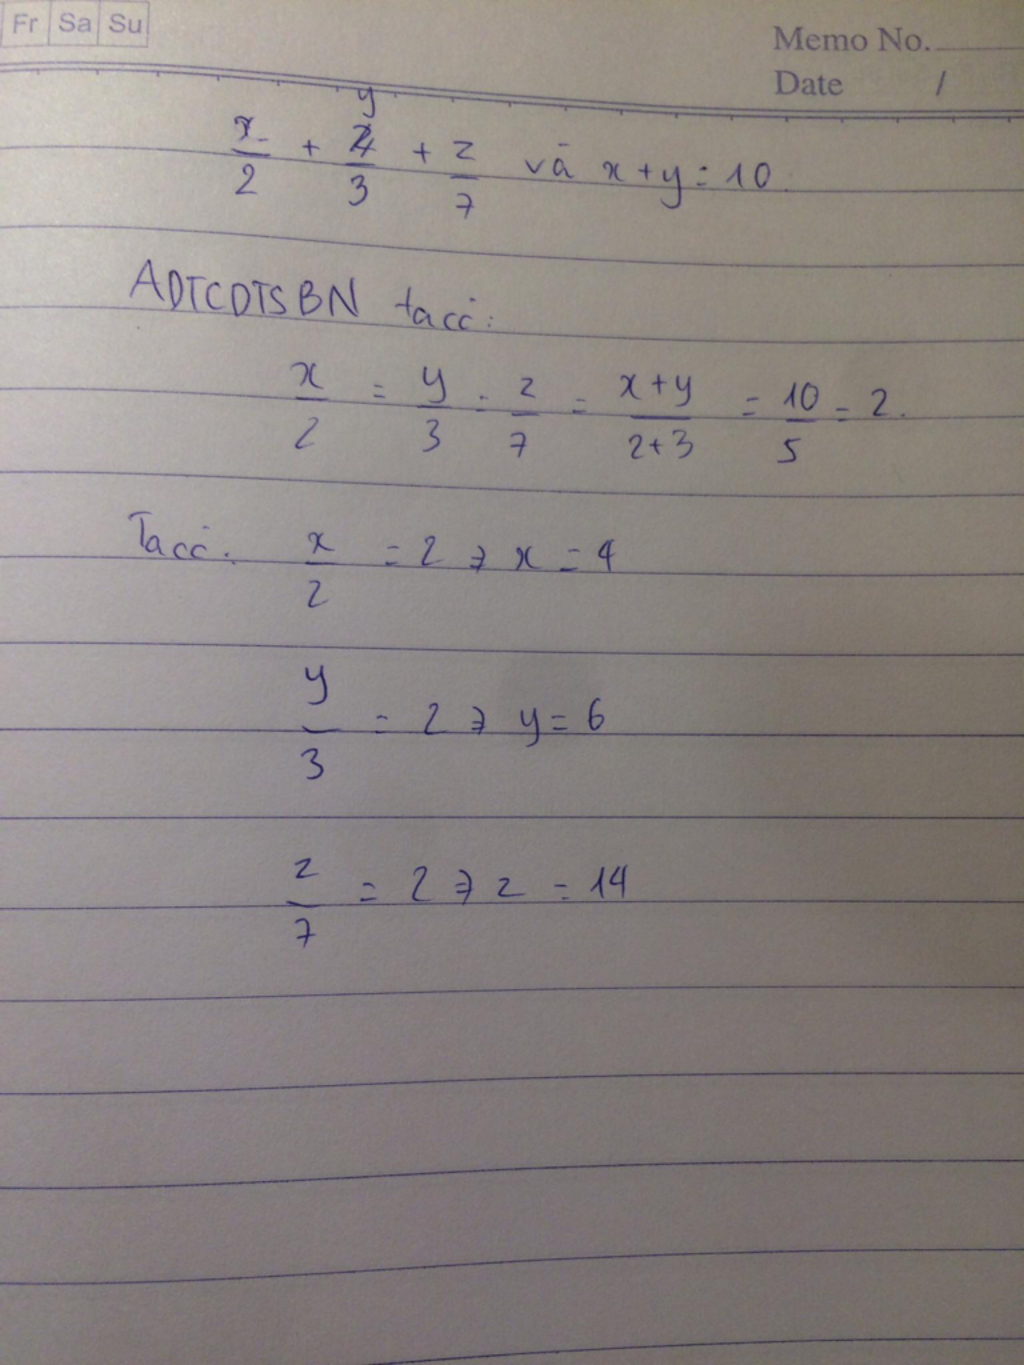 Fr Sa Su
Memo No.
Date /
x/2 + y/3 + z/7 và x+y=10
ADTCDTSBN ta có:
x/2 = y/3 = z/7 = x+y/2+3 = 10/5 = 2.
Ta có: x/2 = 2 => x = 4
y/3 = 2 => y = 6
z/7 = 2 => z = 14